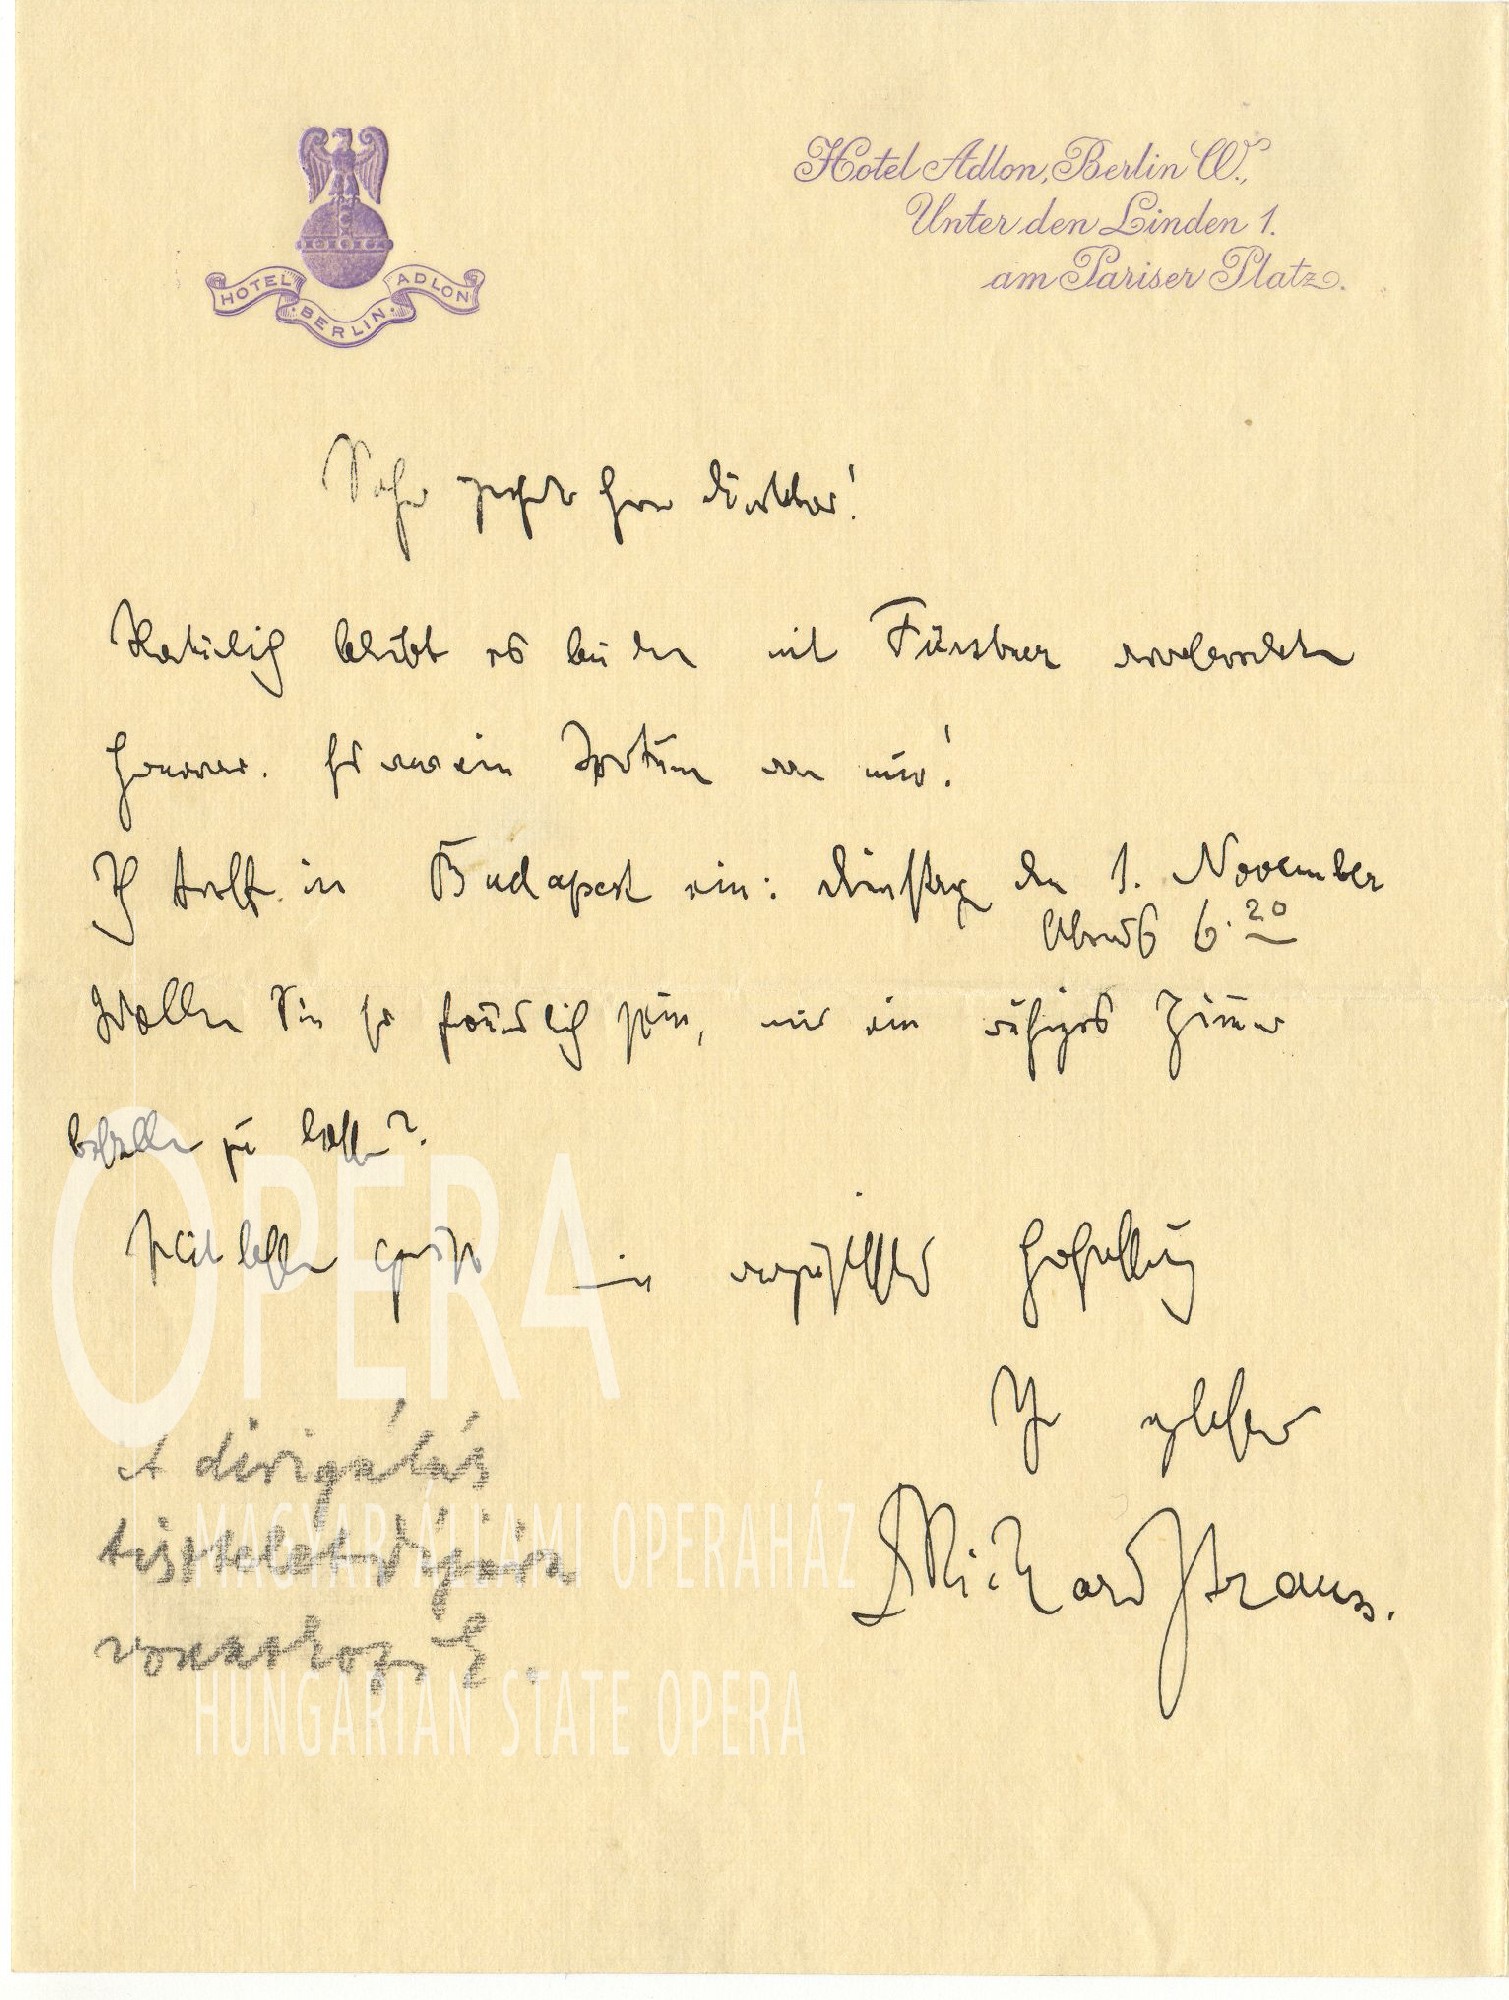 HOTEL ADLON
BERLIN
Hotel Adlon, Berlin W.,
Unter den Linden 1.
am Pariser Platz.
Sehr geehrter Herr Direktor!
Natürlich bleibt es bei den mit Fürstner verabredeten
Honorar. Es war ein Irrtum von mir!
Ich treffe in Budapest ein: Dienstag den 1. November
Abends 6.20
Wollen Sie so freundlich sein, mir ein ruhiges Zimmer
bestellen zu lassen?
Mit besten Grüßen in vorzüglicher Hochachtung
Ihr ergebener
Richard Strauss.
A dirigálás
tiszteletdíjára
vonatkozik.
OPERA
MAGYAR ÁLLAMI OPERAHÁZ
HUNGARIAN STATE OPERA